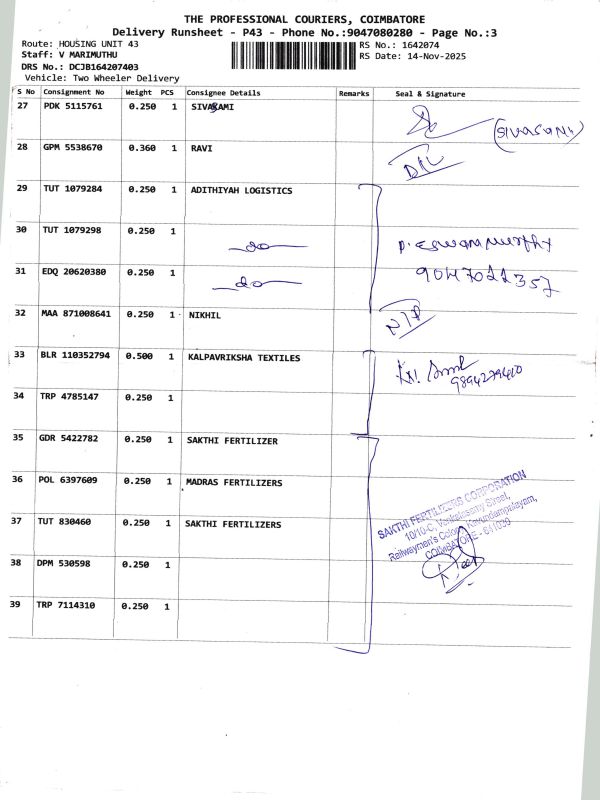 THE PROFESSIONAL COURIERS, COIMBATORE
Delivery Runsheet - P43 - Phone No.:9047080280 - Page No.:3
Route: HOUSING UNIT 43
Staff: V MARIMUTHU
DRS No.: DCJB164207403
Vehicle: Two Wheeler Delivery
RS No.: 1642074
RS Date: 14-Nov-2025
S No Consignment No Weight PCS Consignee Details Remarks Seal & Signature
27 PDK 5115761 0.250 1 SIVASAMI
(SIVASAMI)
28 GPM 5538670 0.360 1 RAVI
D/L
29 TUT 1079284 0.250 1 ADITHIYAH LOGISTICS
30 TUT 1079298 0.250 1
do
P. Eswaramurthy
31 EDQ 20620380 0.250 1
do
9047022357
32 MAA 871008641 0.250 1 NIKHIL
N/P
33 BLR 110352794 0.500 1 KALPAVRIKSHA TEXTILES
9894279410
34 TRP 4785147 0.250 1
35 GDR 5422782 0.250 1 SAKTHI FERTILIZER
36 POL 6397609 0.250 1 MADRAS FERTILIZERS
37 TUT 830460 0.250 1 SAKTHI FERTILIZERS
SAKTHI FERTILIZERS CORPORATION
10/10-C, Venkatasamy Street,
Railwaymen's Colony, Kavundampalayam,
COIMBATORE - 641030
38 DPM 530598 0.250 1
39 TRP 7114310 0.250 1